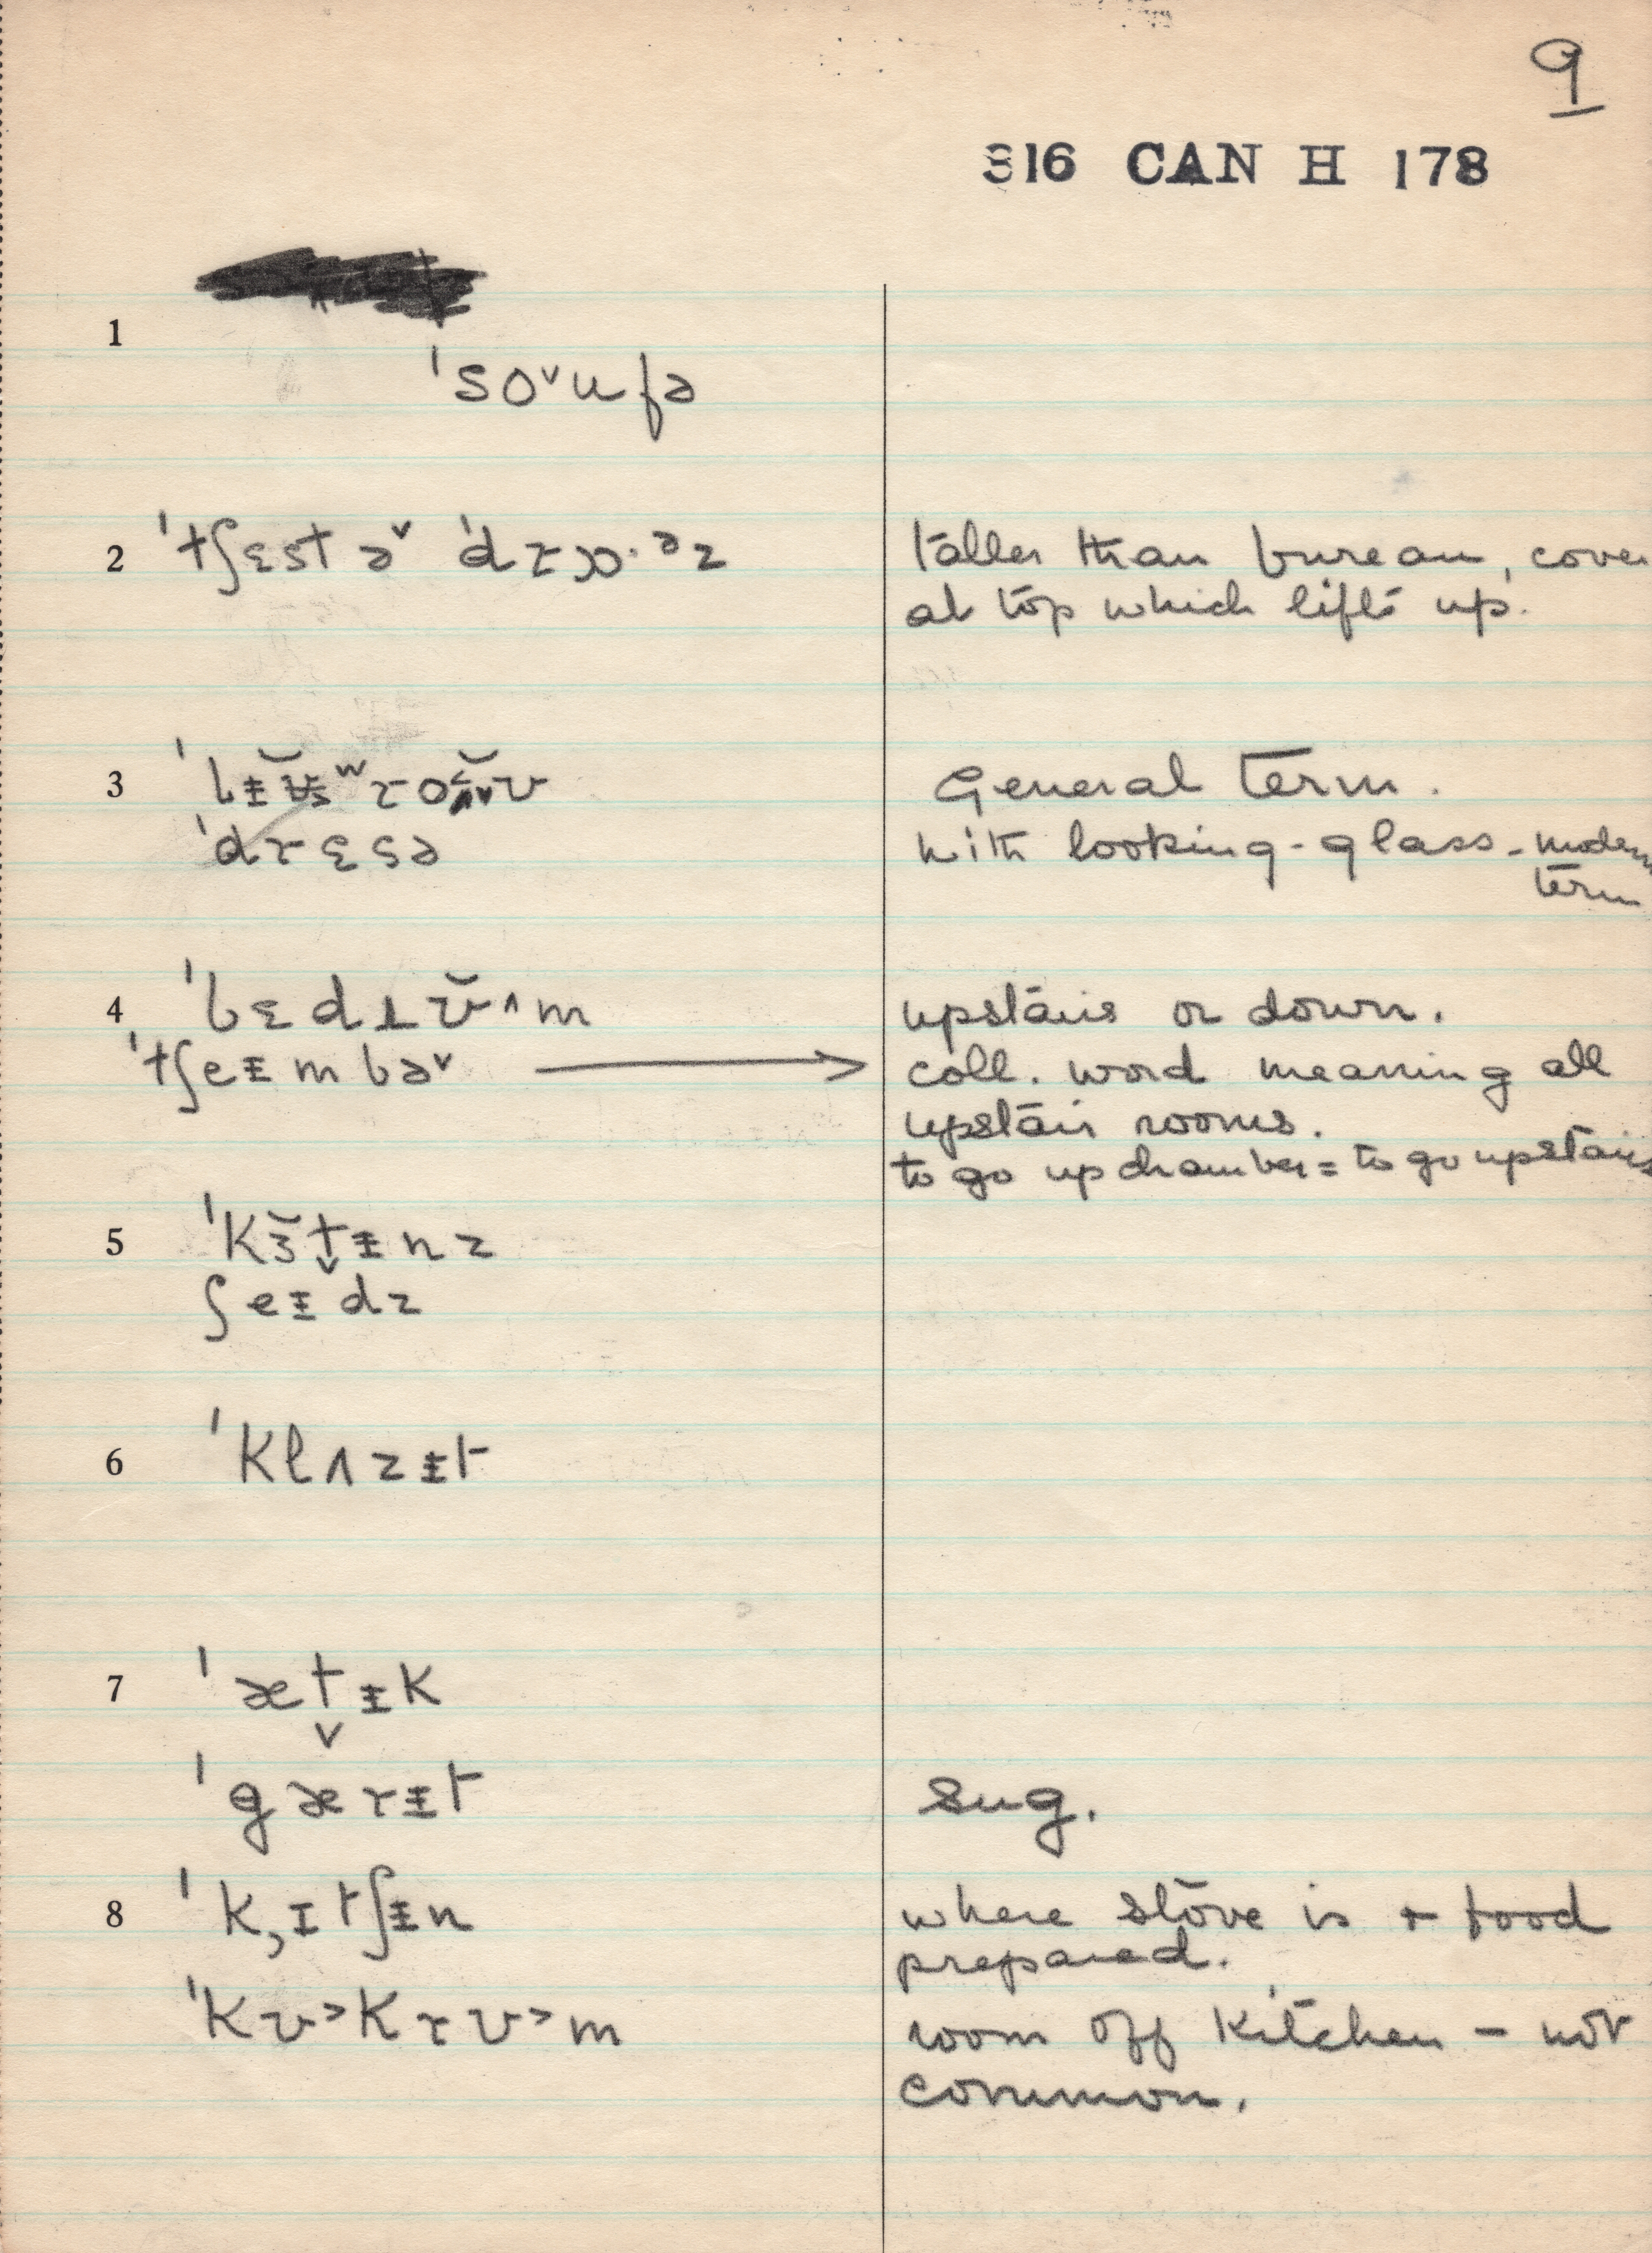 9
316 CAN H 178
1
ˈsoˇufə
2 ˈtʃɛst əˇ ˈdrɔ·ᵊz taller than bureau, cover
at top which lifts up.
3 General term.
ˈdrɛsə with looking-glass - modern
term
4 ˈbɛdɹʊ̆^m upstairs or down.
ˈtʃeɪ̵mbəˇ → coll. word meaning all
upstair rooms.
to go up chamber = to go upstairs
5 ˈkɜ̆t̬ɪ̵nz
ʃeɪ̵dz
6 ˈklʌzɪ̵t
7 ˈæt̬ɪ̵k
ˈgærɪ̵t sug.
8 ˈk̦ɪtʃɪ̵n where stove is + food
prepared.
ˈkʊ˃krʊ˃m room off kitchen - not
common.